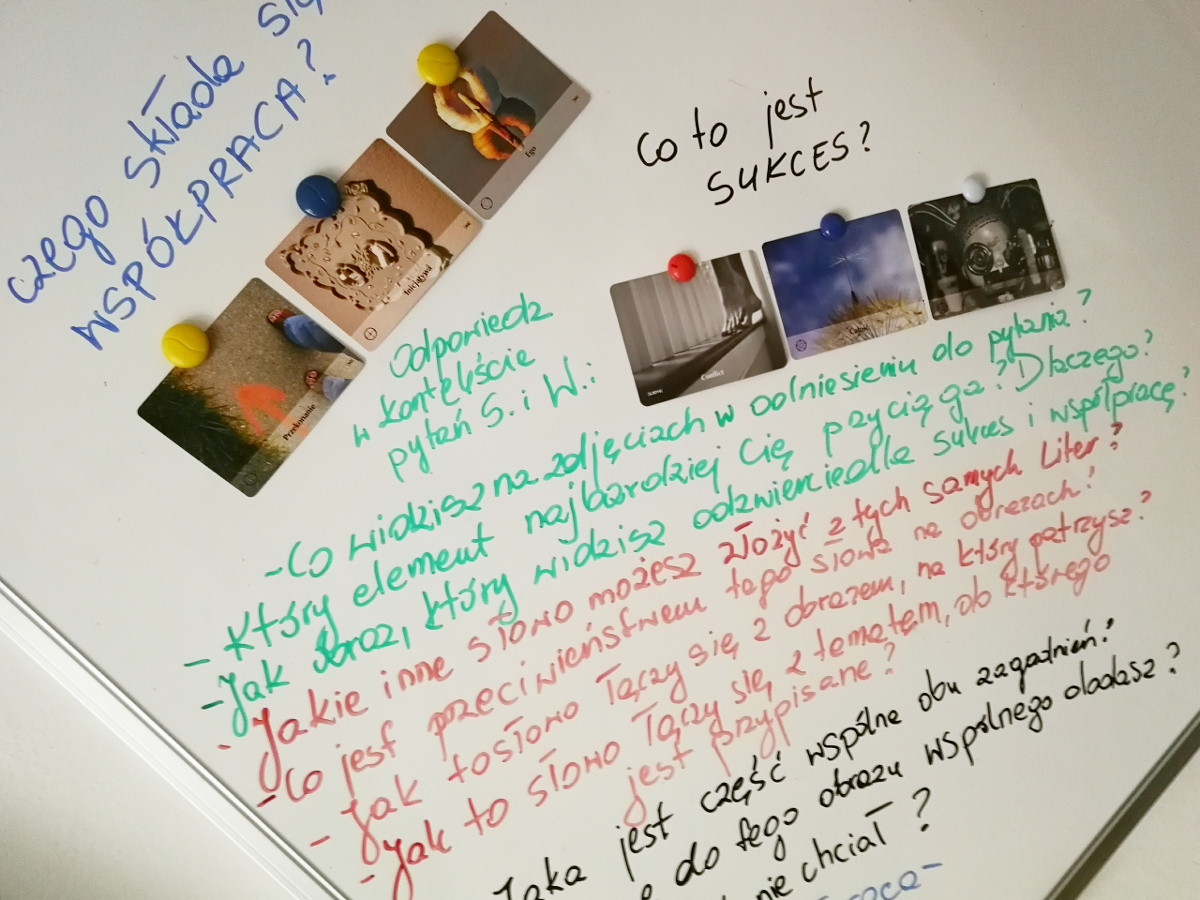 czego składa się
WSPÓŁPRACA?
Ego
Inicjatywa
Przekonanie
Co to jest
SUKCES?
Conflict
Odpowiedz
w kontekście
pytań S. i W.:
- Co widzisz na zdjęciach w odniesieniu do pytania?
- Który element najbardziej Cię przyciąga? Dlaczego?
- Jak obraz, który widzisz odzwierciedla sukces i współpracę?
- Jakie inne słowo możesz złożyć z tych samych liter?
- Co jest przeciwieństwem tego słowa na obrazach?
- Jak to słowo łączy się z obrazem, na który patrzysz?
- Jak to słowo łączy się z tematem, do którego
jest przypisane?
Jaka jest część wspólna obu zagadnień?
do tego obrazu wspólnego dodasz?
nie chciał?